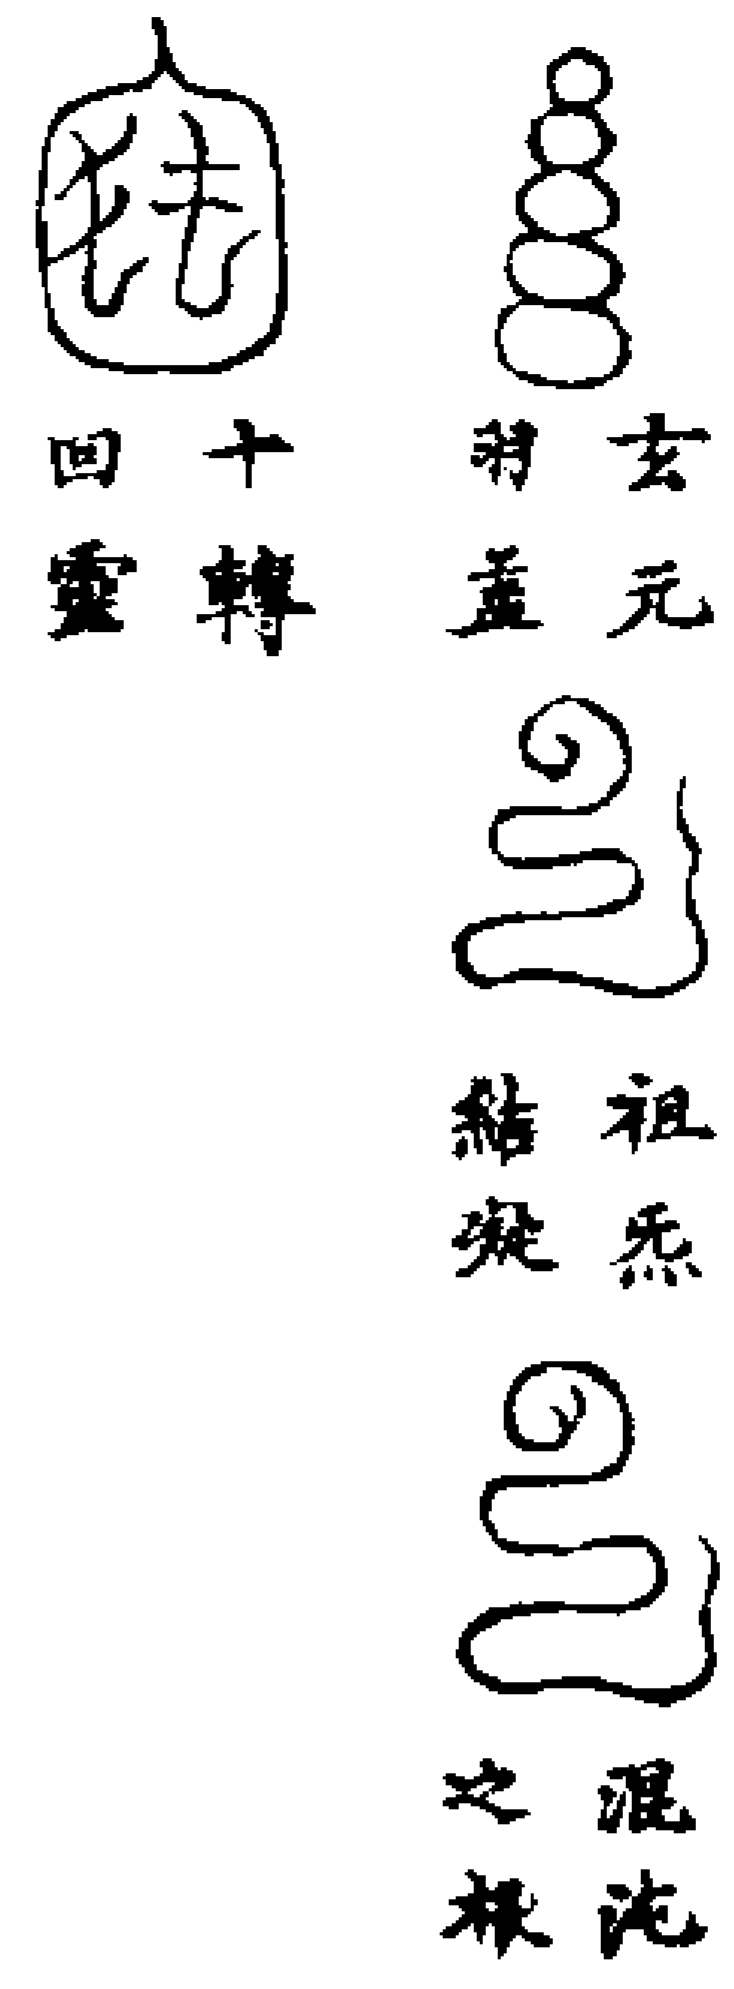 玄元
羽盖
祖炁
結凝
混沌
之根
十轉
回靈